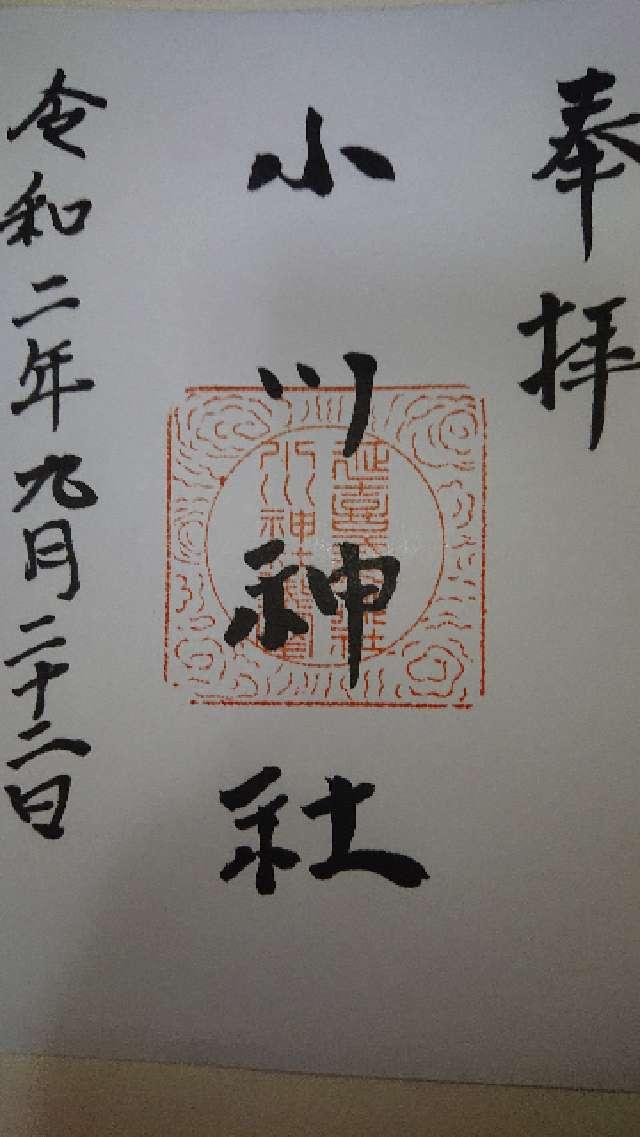 奉拝
小川神社
令和二年九月二十二日